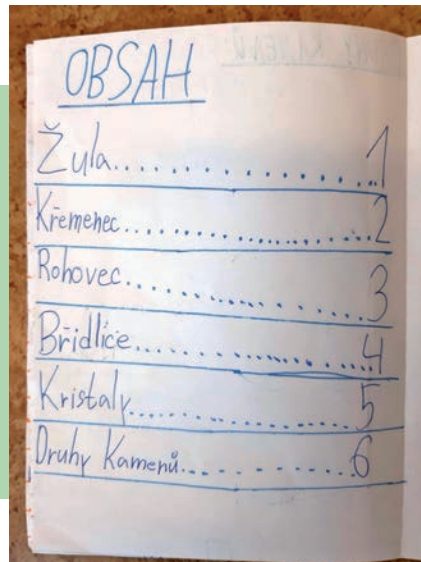 OBSAH
Žula................1
Křemenec................2
Rohovec................3
Břidlice................4
Kristaly................5
Druhy Kamenů................6